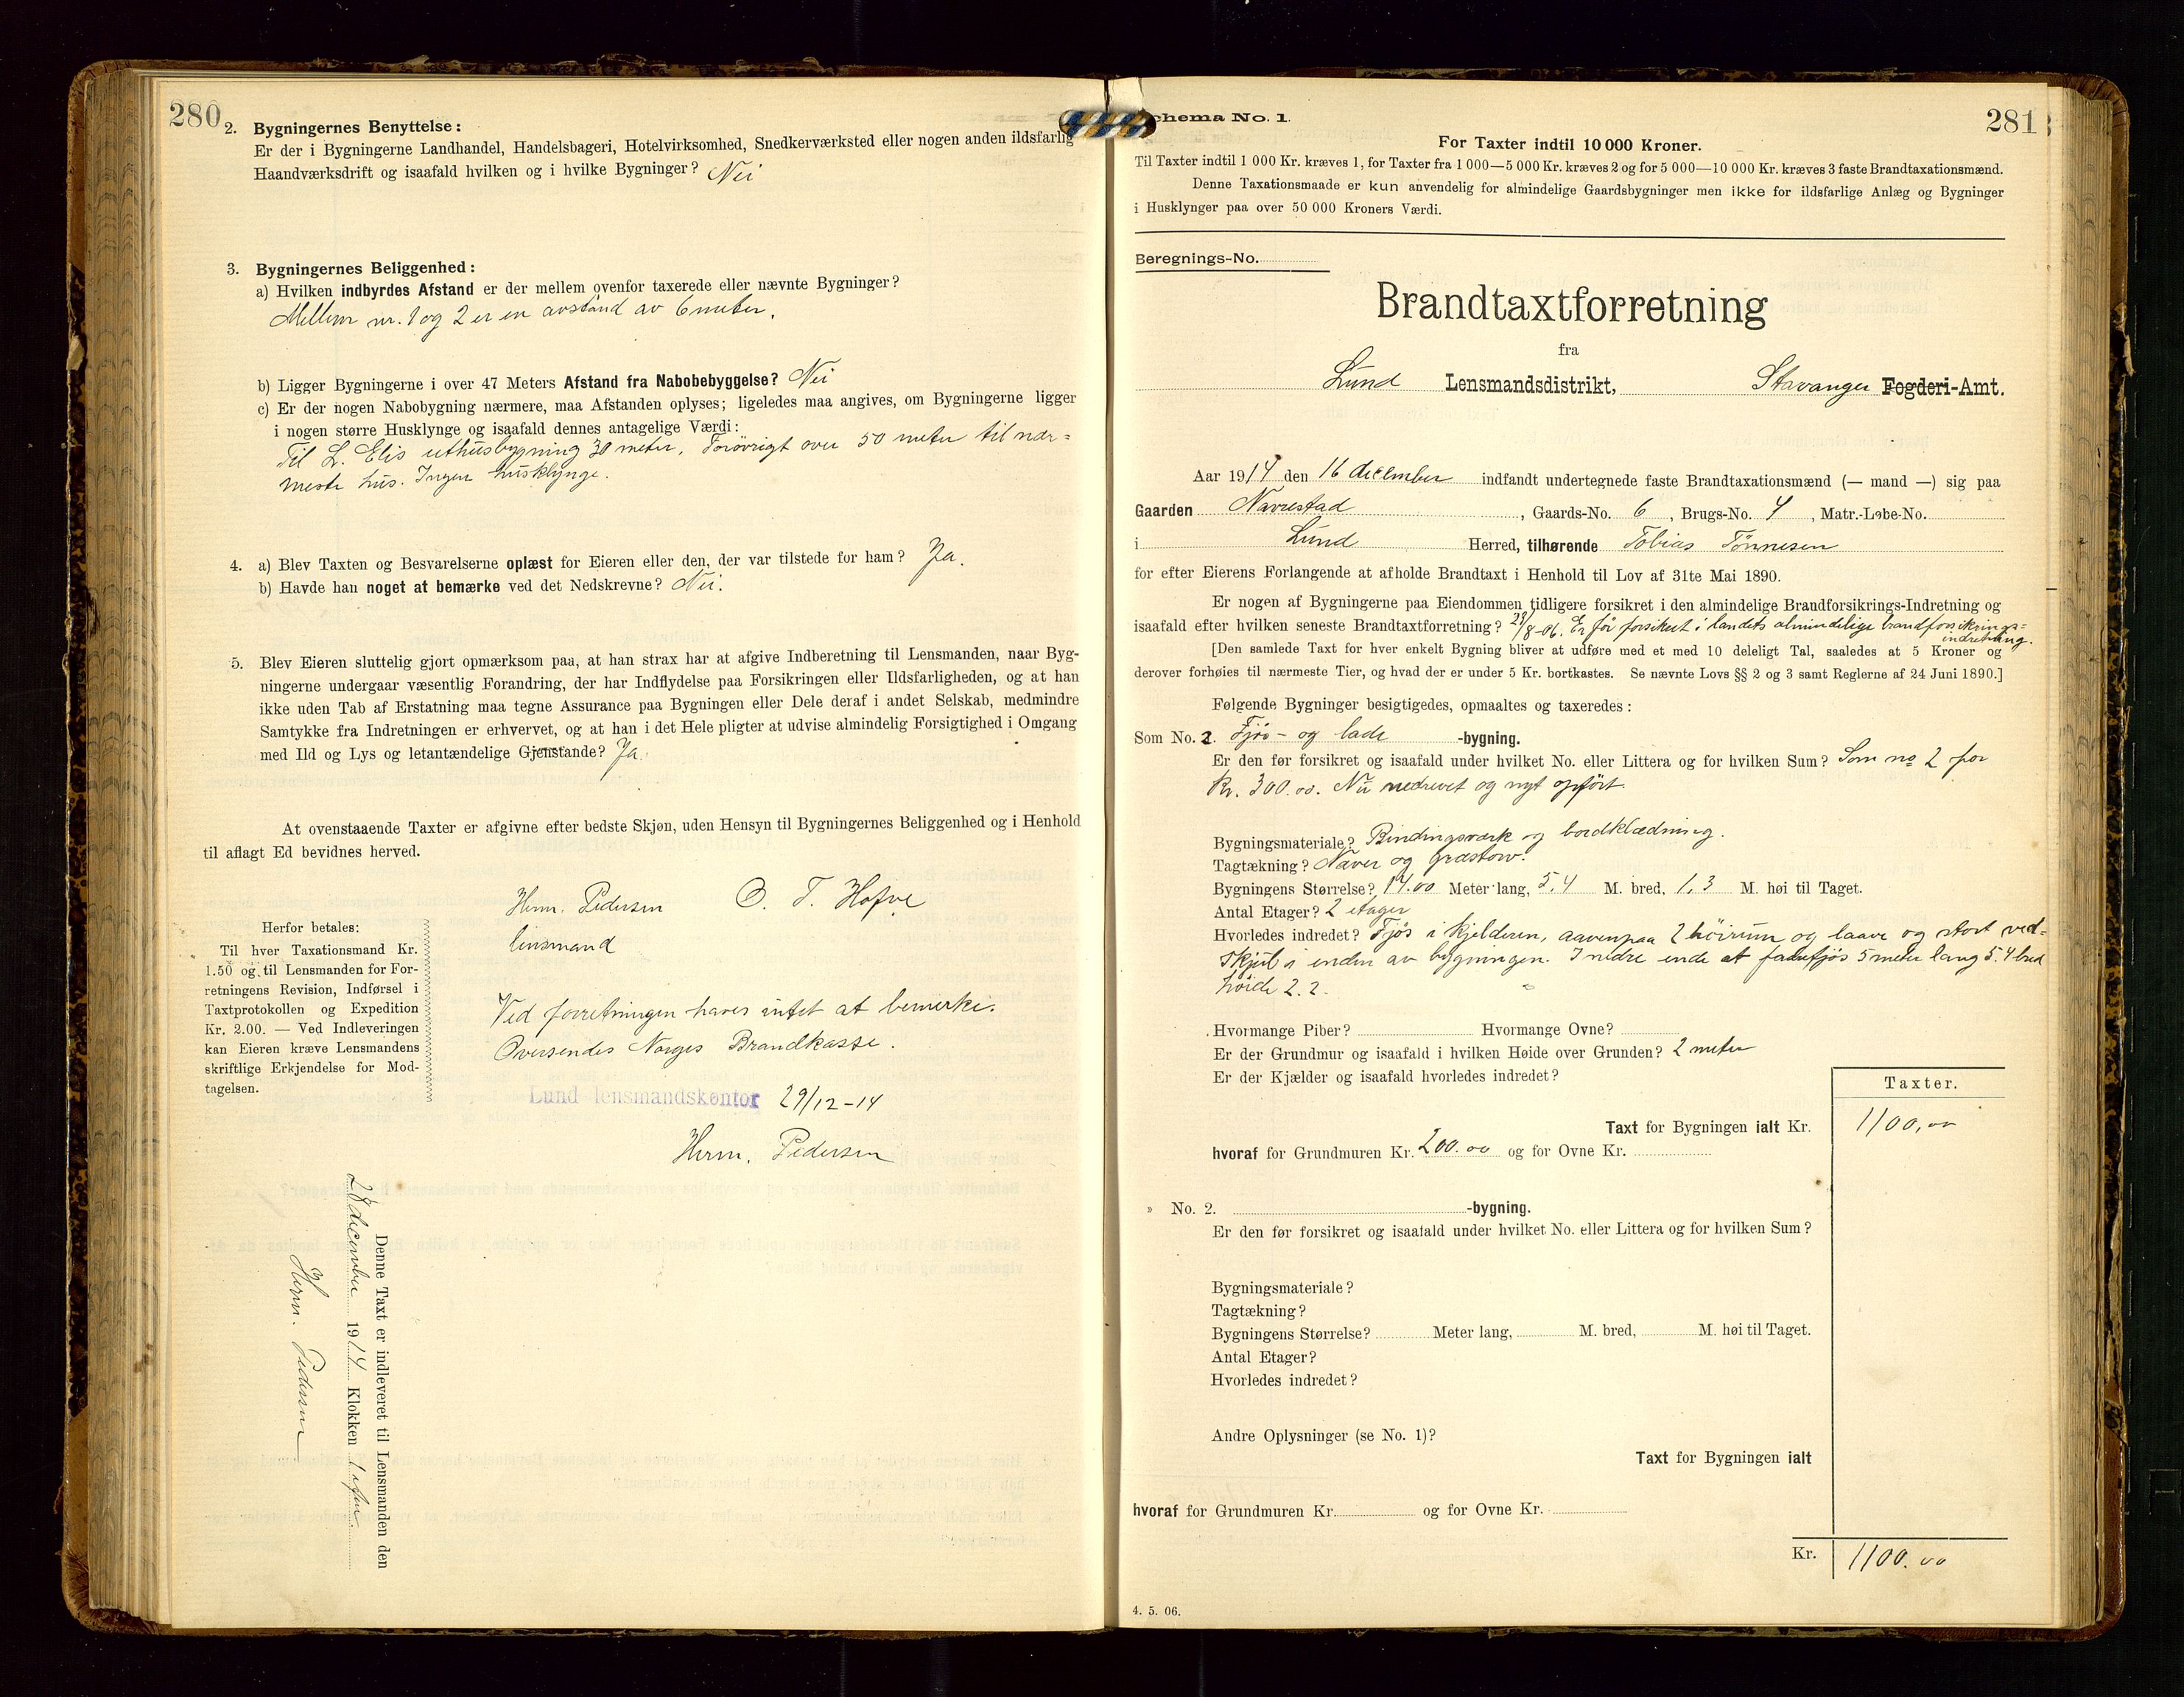 280
2. Bygningernes Benyttelse:
Er der i Bygningerne Landhandel, Handelsbageri, Hotelvirksomhed, Snedkerværksted eller nogen anden ildsfarlig
Haandværksdrift og isaafald hvilken og i hvilke Bygninger? Nei
3. Bygningernes Beliggenhed:
a) Hvilken indbyrdes Afstand er der mellem ovenfor taxerede eller nævnte Bygninger?
Mellem nr. 1 og 2 er en avstand av 6 meter.
b) Ligger Bygningerne i over 47 Meters Afstand fra Nabobebyggelse? Nei
c) Er der nogen Nabobygning nærmere, maa Afstanden oplyses; ligeledes maa angives, om Bygningerne ligger
i nogen større Husklynge og isaafald dennes antagelige Værdi:
Til L. Elis uthusbygning 30 meter. Forøvrigt over 50 meter til nær=
meste hus. Ingen husklynge.
4. a) Blev Taxten og Besvarelserne oplæst for Eieren eller den, der var tilstede for ham? Ja.
b) Havde han noget at bemærke ved det Nedskrevne? Nei.
5. Blev Eieren sluttelig gjort opmærksom paa, at han strax har at afgive Indberetning til Lensmanden, naar Byg-
ningerne undergaar væsentlig Forandring, der har Indflydelse paa Forsikringen eller Ildsfarligheden, og at han
ikke uden Tab af Erstatning maa tegne Assurance paa Bygningen eller Dele deraf i andet Selskab, medmindre
Samtykke fra Indretningen er erhvervet, og at han i det Hele pligter at udvise almindelig Forsigtighed i Omgang
med Ild og Lys og letantændelige Gjenstande? Ja.
At ovenstaaende Taxter er afgivne efter bedste Skjøn, uden Hensyn til Bygningernes Beliggenhed og i Henhold
til aflagt Ed bevidnes herved.
Herm. Pedersen O. T. Hofve
lensmand
Herfor betales:
Til hver Taxationsmand Kr.
1.50 og til Lensmanden for For-
retningens Revision, Indførsel i
Taxtprotokollen og Expedition
Kr. 2.00. — Ved Indleveringen
kan Eieren kræve Lensmandens
skriftlige Erkjendelse for Mod-
tagelsen.
Ved forretningen haves intet at bemerke.
Oversendes Norges Brandkasse.
Lund lensmandskontor 29/12-14
Herm. Pedersen
Denne Taxt er indleveret til Lensmanden den
28 december 1914 Klokken 1 efm.
Herm. Pedersen
281
chema No. 1.
For Taxter indtil 10 000 Kroner.
Til Taxter indtil 1 000 Kr. kræves 1, for Taxter fra 1 000—5 000 Kr. kræves 2 og for 5 000—10 000 Kr. kræves 3 faste Brandtaxationsmænd.
Denne Taxationsmaade er kun anvendelig for almindelige Gaardsbygninger men ikke for ildsfarlige Anlæg og Bygninger
i Husklynger paa over 50 000 Kroners Værdi.
Beregnings-No.
Brandtaxtforretning
fra
Lund Lensmandsdistrikt, Stavanger Fogderi-Amt.
Aar 1914 den 16 december indfandt undertegnede faste Brandtaxationsmænd (— mand —) sig paa
Gaarden Navrestad, Gaards-No. 6, Brugs-No. 4, Matr.-Løbe-No.
i Lund Herred, tilhørende Tobias Tønnesen
for efter Eierens Forlangende at afholde Brandtaxt i Henhold til Lov af 31te Mai 1890.
Er nogen af Bygningerne paa Eiendommen tidligere forsikret i den almindelige Brandforsikrings-Indretning og
isaafald efter hvilken seneste Brandtaxtforretning? 28/8-06. Er før forsikret i landets almindelige brandforsikrings=
indretning.
[Den samlede Taxt for hver enkelt Bygning bliver at udføre med et med 10 deleligt Tal, saaledes at 5 Kroner og
derover forhøies til nærmeste Tier, og hvad der er under 5 Kr. bortkastes. Se nævnte Lovs §§ 2 og 3 samt Reglerne af 24 Juni 1890.]
Følgende Bygninger besigtigedes, opmaaltes og taxeredes:
Som No. 2. Fjøs- og lade -bygning.
Er den før forsikret og isaafald under hvilket No. eller Littera og for hvilken Sum? Som no 2 for
kr. 300.00. Nu nedrevet og nyt opført.
Bygningsmateriale? Bindingsværk og bordklædning.
Tagtækning? Næver og græstorv.
Bygningens Størrelse? 14.00 Meter lang, 5,4 M. bred, 1,3 M. høi til Taget.
Antal Etager? 2 etager
Hvorledes indredet? Fjøs i kjelderen, aavenpaa 2 høirum og laave og stort ved-
skjul i enden av bygningen. I nedre ende at faarefjøs 5 meter lang 5.4 bred
høide 2.2.
Hvormange Piber? Hvormange Ovne?
Er der Grundmur og isaafald i hvilken Høide over Grunden? 2 meter
Er der Kjælder og isaafald hvorledes indredet?
Taxter.
Taxt for Bygningen ialt Kr. 1100,00
hvoraf for Grundmuren Kr. 200.00 og for Ovne Kr.
» No. 2. -bygning.
Er den før forsikret og isaafald under hvilket No. eller Littera og for hvilken Sum?
Bygningsmateriale?
Tagtækning?
Bygningens Størrelse? Meter lang, M. bred, M. høi til Taget.
Antal Etager?
Hvorledes indredet?
Andre Oplysninger (se No. 1)?
Taxt for Bygningen ialt
hvoraf for Grundmuren Kr. og for Ovne Kr.
Kr. 1100.00
4. 5. 06.